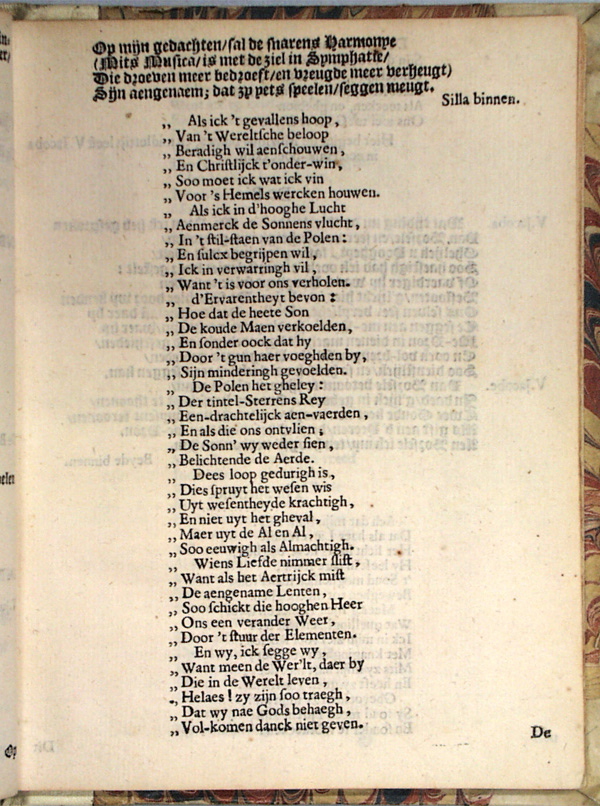 Op mijn gedachten/sal de snarens Harmonye
(Mits Musica/is met de ziel in Symphatie/
Die droeven meer bedroeft/en vreugde meer verheugt)
Sijn aengenaem; dat zy yets speelen/seggen meugt.
Silla binnen.
,, Als ick 't gevallens hoop,
,, Van 't Wereltsche beloop
,, Beradigh wil aenschouwen,
,, En Christlijck t'onder-win,
,, Soo moet ick wat ick vin
,, Voor 's Hemels wercken houwen.
,, Als ick in d'hooghe Lucht
,, Aenmerck de Sonnens vlucht,
,, In 't stil-staen van de Polen:
,, En sulcx begrijpen wil,
,, Ick in verwarringh vil,
,, Want 't is voor ons verholen.
,, d'Ervarentheyt bevon:
,, Hoe dat de heete Son
,, De koude Maen verkoelden,
,, En sonder oock dat hy
,, Door 't gun haer voeghden by,
,, Sijn minderingh gevoelden.
,, De Polen het gheley:
,, Der tintel-Sterrens Rey
,, Een-drachtelijck aen-vaerden,
,, En als die ons ontvlien;
,, De Sonn' wy weder sien,
,, Belichtende de Aerde.
,, Dees loop gedurigh is,
,, Dies spruyt het wesen wis
,, Uyt wesentheyde krachtigh,
,, En niet uyt het gheval,
,, Maer uyt de Al en Al,
,, Soo eeuwigh als Almachtigh.
,, Wiens Liefde nimmer slist,
,, Want als het Aertrijck mist
,, De aengename Lenten,
,, Soo schickt die hooghen Heer
,, Ons een verander Weer,
,, Door 't stuur der Elementen.
,, En wy, ick segge wy,
,, Want meen de Wer'lt, daer by
,, Die in de Werelt leven,
,, Helaes! zy zijn soo traegh,
,, Dat wy nae Gods behaegh,
,, Vol-komen danck niet geven.
De